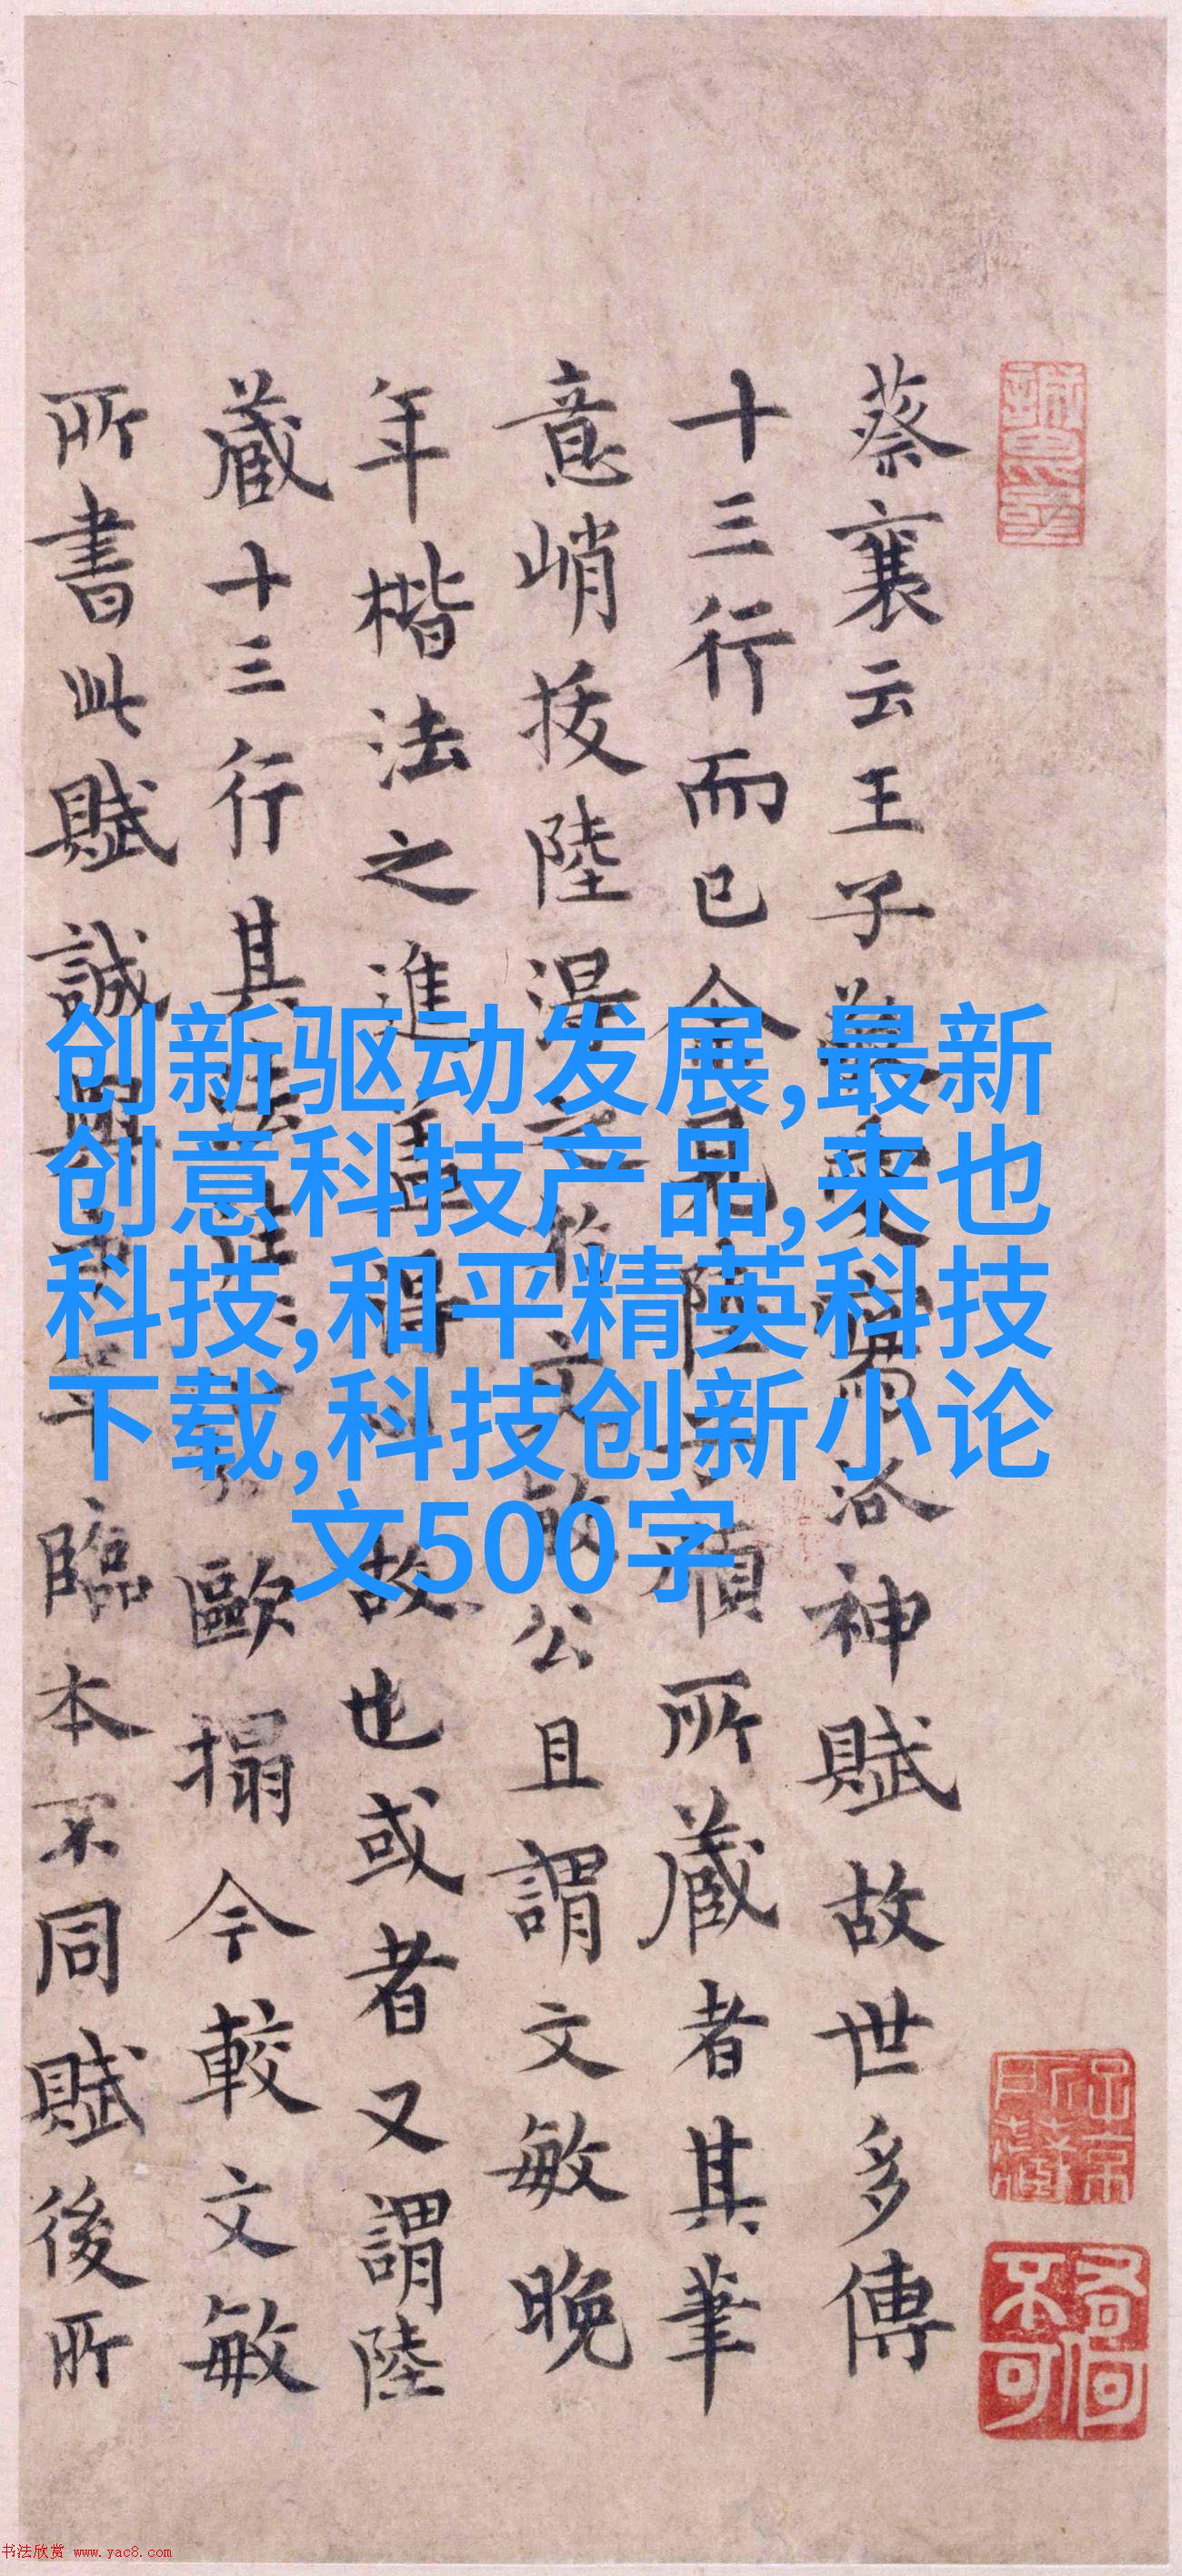 蔡襄云王子洛神賦故世多傳
十三行而已今見陸所藏者其筆
意峭拔陸文公且謂文敏晚
年楷法之進蓋得故也或者又謂陸
藏十三行其歐搨今較文敏
所書此賦誠與臨本不同賦後所
创新驱动发展,最新
创意科技产品,来也
科技,和平精英科技
下载,科技创新小论
文500字
书法欣赏 www.yac8.com